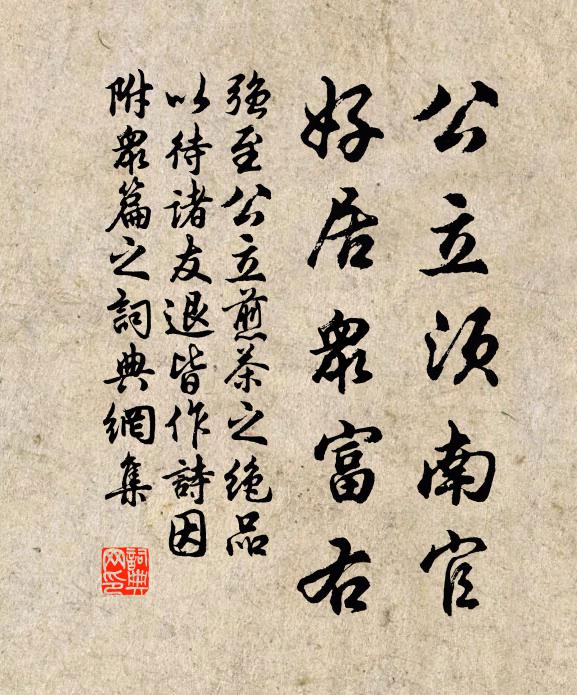 公立須南官
好居眾富右
強至公立煎茶之絕品
以待諸友退皆作詩因
附眾篇之詞典網集
詞典网印